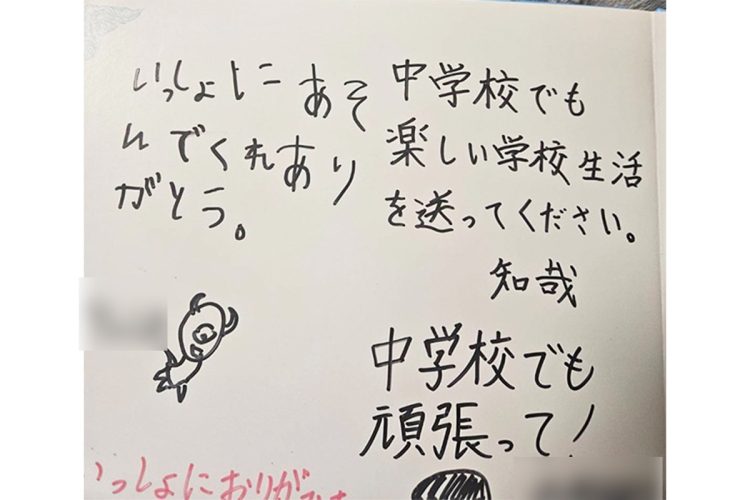 いっしょにあそ
んでくれあり
がとう。
中学校でも
楽しい学校生活
を送ってください。
知哉
中学校でも
頑張って!
いっしょにおりが